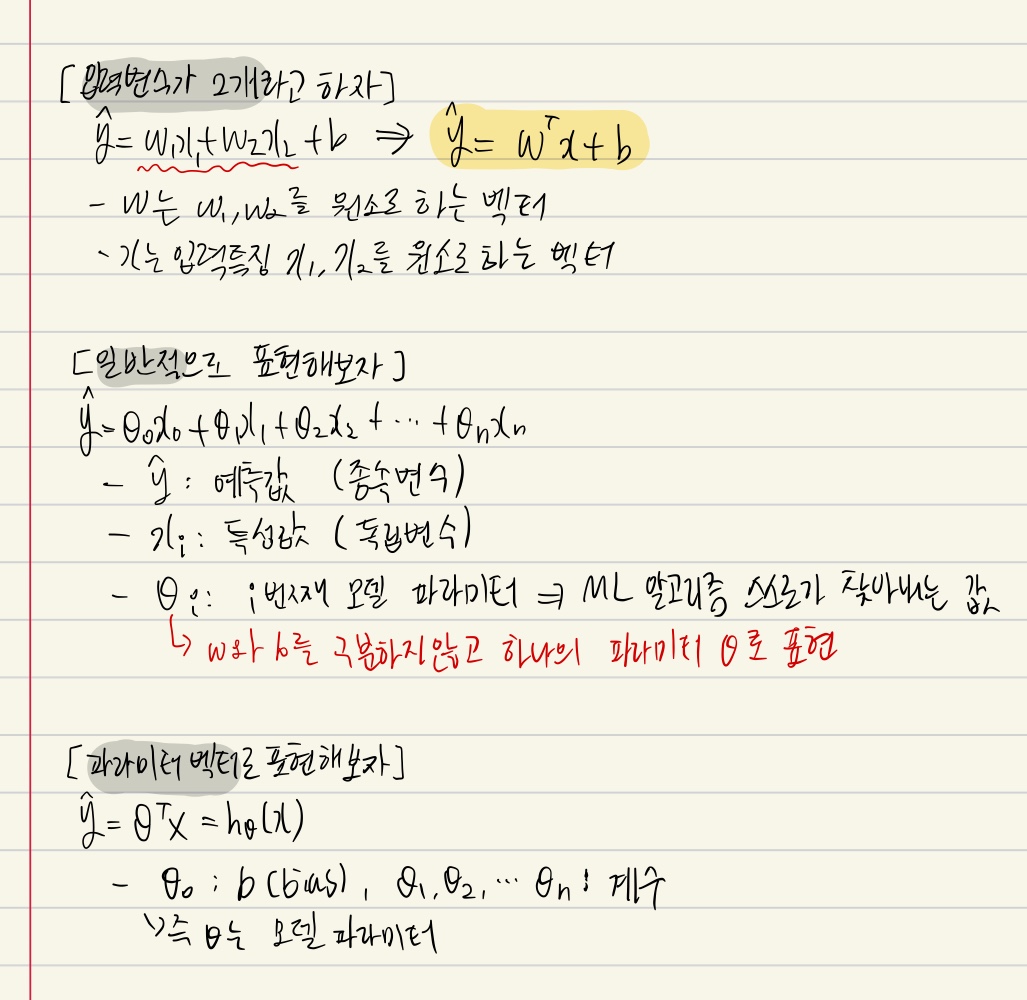 [입력변수가 2개라고 하자]
ŷ = w₁x₁ + w₂x₂ + b ⇒ ŷ = wᵀx + b
- w는 w₁, w₂를 원소로 하는 벡터
- x는 입력특징 x₁, x₂를 원소로 하는 벡터
[일반적으로 표현해보자]
ŷ = θ₀x₀ + θ₁x₁ + θ₂x₂ + ··· + θₙxₙ
- ŷ : 예측값 (종속변수)
- xᵢ : 특성값 (독립변수)
- θᵢ : i번째 모델 파라미터 ⇒ ML 알고리즘 스스로가 찾아내는 값
↳ w와 b를 구분하지않고 하나의 파라미터 θ로 표현
[파라미터 벡터로 표현해보자]
ŷ = θᵀx = hθ(x)
- θ₀ : b (bias), θ₁, θ₂, ··· θₙ : 계수
↳ 즉 θ는 모델 파라미터